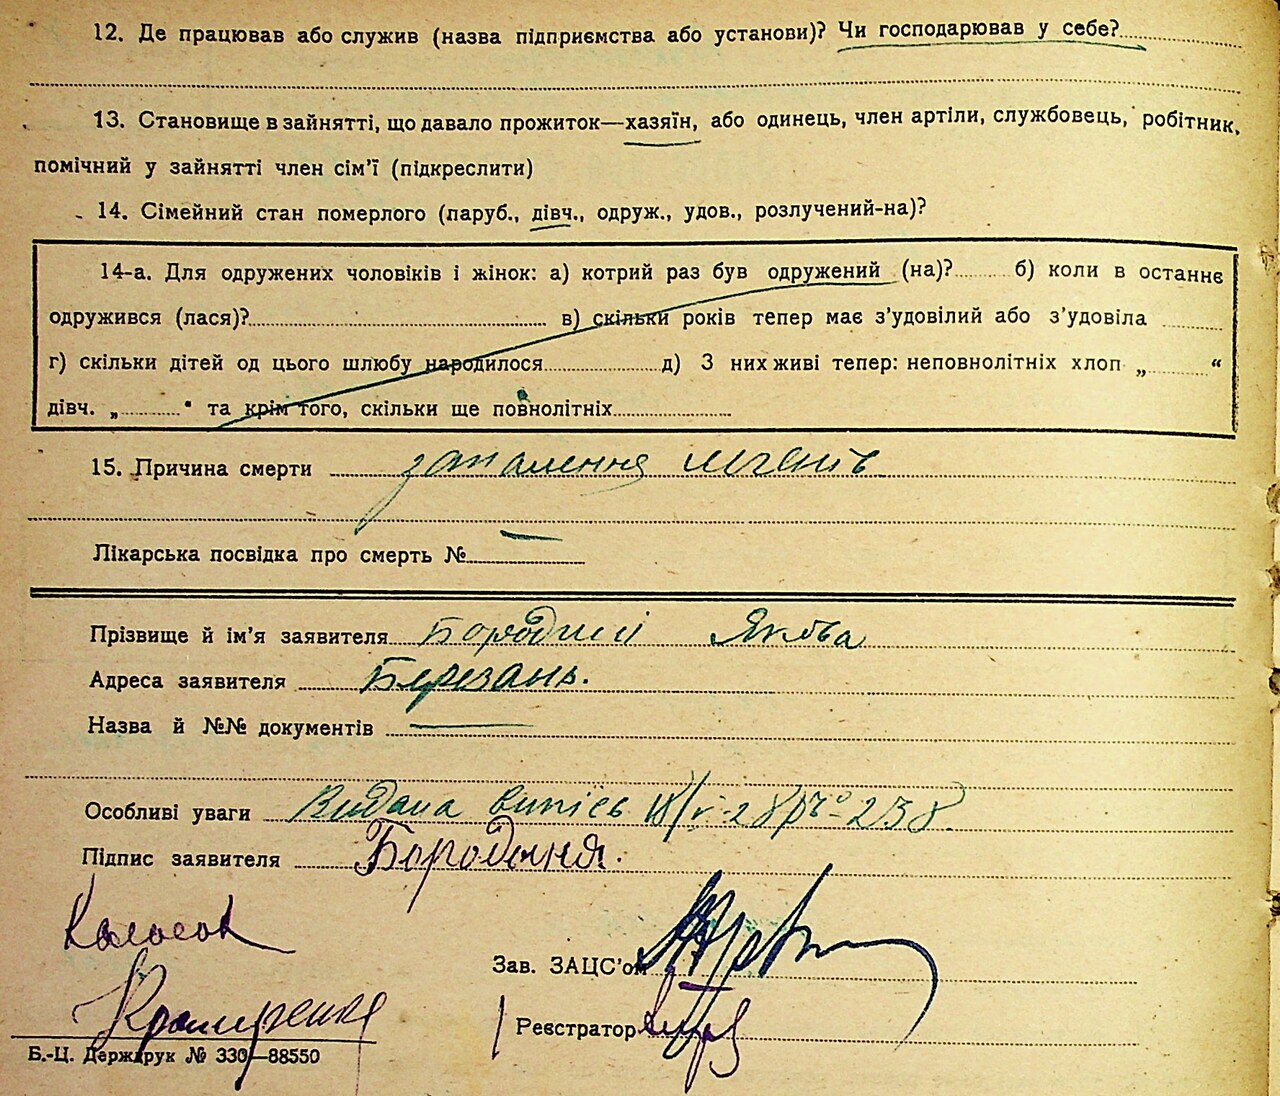 12. Де працював або служив (назва підприємства або установи)? Чи господарював у себе?
13. Становище в зайнятті, що давало прожиток—хазяїн, або одинець, член артіли, службовець, робітник,
помічний у зайнятті член сім'ї (підкреслити)
14. Сімейний стан померлого (паруб., дівч., одруж., удов., розлучений-на)?
14-а. Для одружених чоловіків і жінок: а) котрий раз був одружений (на)? б) коли в останнє
одружився (лася)? в) скільки років тепер має з'удовілий або з'удовіла
г) скільки дітей од цього шлюбу народилося д) З них живі тепер: неповнолітніх хлоп „ “
дівч. „ “ та крім того, скільки ще повнолітніх
15. Причина смерти запалення легенів
Лікарська посвідка про смерть №
Прізвище й ім'я заявителя Бородині Якова
Адреса заявителя Березань.
Назва й №№ документів
Особливі уваги Видана випісь 238
Підпис заявителя Бородиня.
Колосок
Зав. ЗАЦС'ом
Реєстратор
Б.-Ц. Держдрук № 330—88550